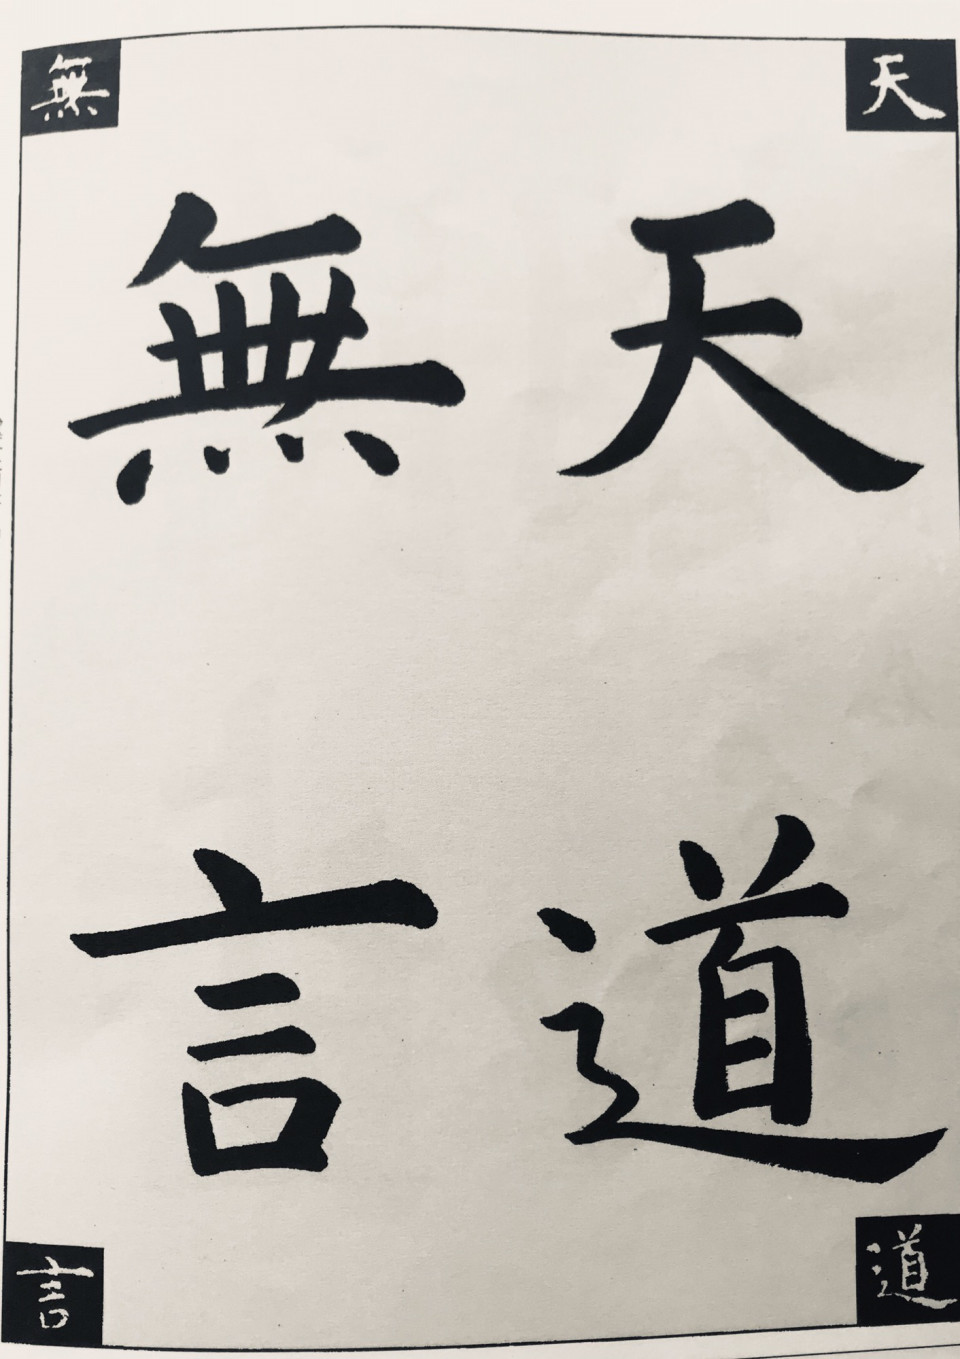 天道
無言
天
道
無
言